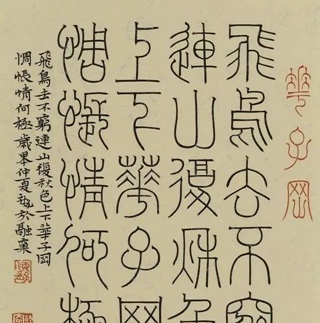 華子岡
飛鳥去不窮
連山復秋色
上下華子岡
惆悵情何極
飛鳥去不窮連山復秋色上下華子岡
惆悵情何極歲仲夏於融